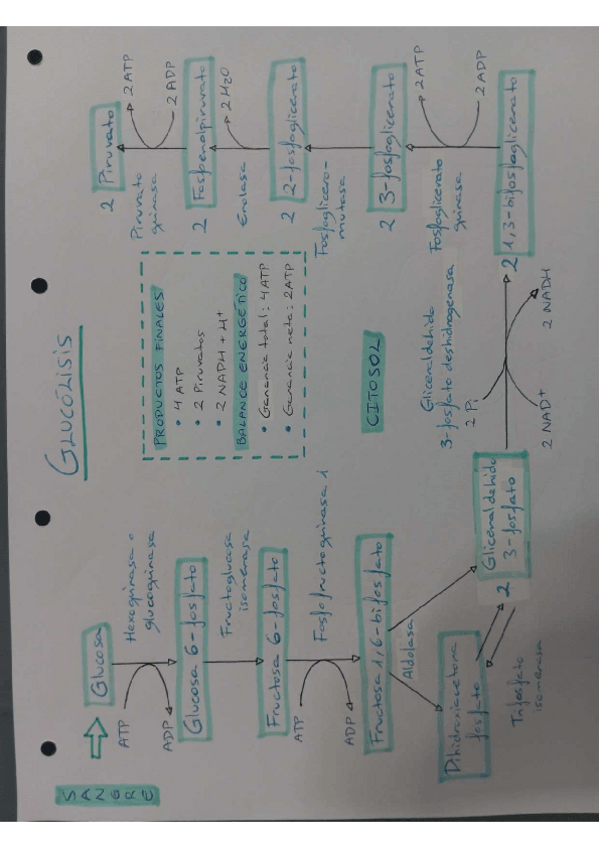 GLUCÓLISIS
SANGRE
Glucosa
ATP
ADP
Hexoquinasa o
glucoquinasa
Glucosa 6-fosfato
Fructoglucosa
isomerasa
Fructosa 6-fosfato
ATP
ADP
Fosfofructoquinasa 1
Fructosa 1,6-bifosfato
Aldolasa
Dihidroxiacetona
fosfato
Trifosfato
isomerasa
2 Gliceraldehido
3-fosfato
2 NAD+
2 NADH
2 Pi
Gliceraldehido
3-fosfato deshidrogenasa
2 1,3-bifosfoglicerato
2 ADP
2 ATP
Fosfoglicerato
quinasa
2 3-fosfoglicerato
Fosfoglicero-
mutasa
2 2-fosfoglicerato
2 H2O
Enolasa
2 Fosfoenolpiruvato
2 ADP
2 ATP
Piruvato
quinasa
2 Piruvato
PRODUCTOS FINALES
• 4 ATP
• 2 Piruvatos
• 2 NADH + H+
BALANCE ENERGÉTICO
• Ganancia total: 4 ATP
• Ganancia neta: 2 ATP
CITOSOL